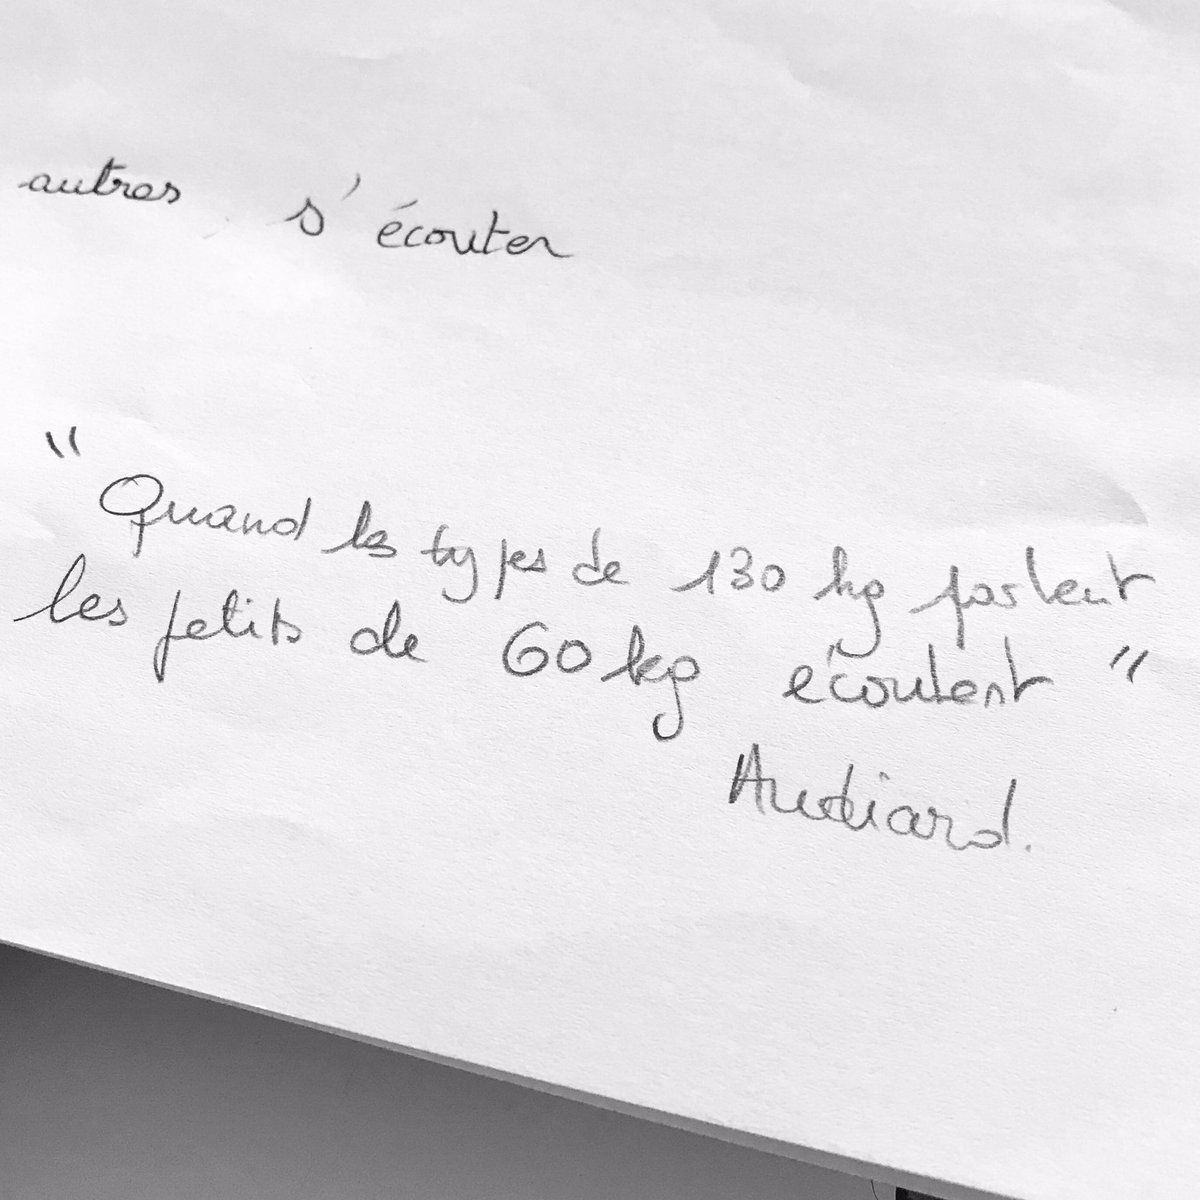 autres s'écouter
"Quand les types de 130 kg parlent
les petits de 60 kg écoutent"
Audiard.